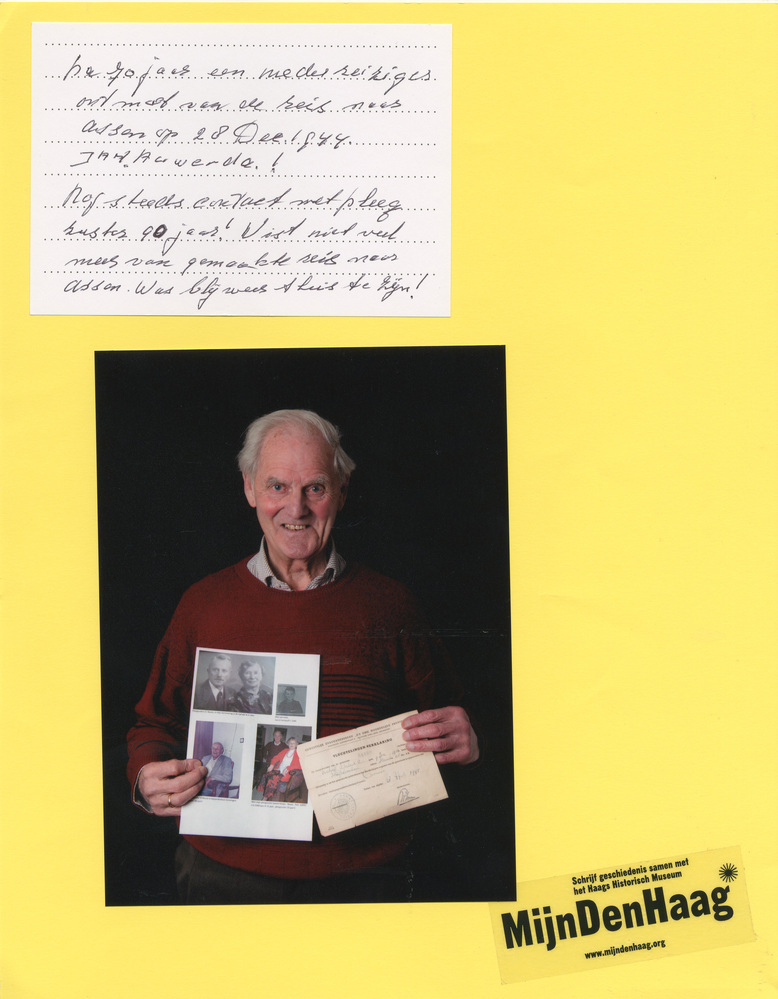 na 70 jaar een mede reiziger
ontmoet van de reis naar
Assen op 28 Dec. 1944.
Nog steeds contact met pleeg
zuster 90 jaar! Wist niet veel
meer van gemaakte reis naar
Assen. Was blij weer thuis te zijn!
VLUCHTELINGEN-VERKLARING
Schrijf geschiedenis samen met
het Haags Historisch Museum
MijnDenHaag
www.mijndenhaag.org